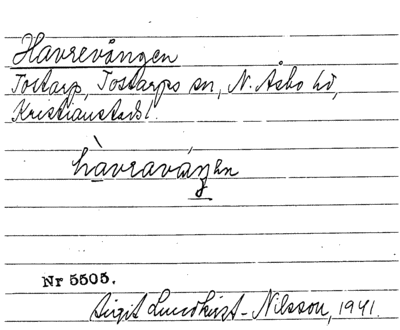 Havrevången
Tostarp, Tostarps sn, N. Åsbo hd,
Kristianstads l.
hàvraváŋən
Nr 5505.
Birgit Lundkvist-Nilsson, 1941.